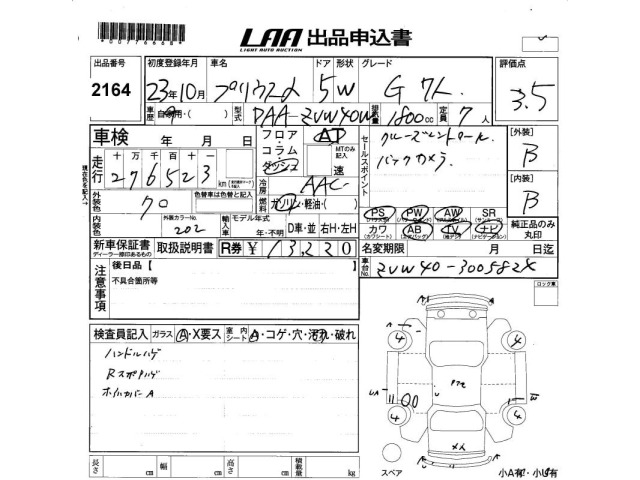 *00776668*
LAA 出品申込書
LIGHT AUTO AUCTION
出品番号 初度登録年月 車名 ドア 形状 グレード 評価点
2164 23年10月 プリウスα 5 W G 7人 3.5
車歴 自家用・( ) 型式 DAA-ZVW40W 排気量 1800cc 定員 7人
車検 年 月 日
フロア AT
コラム MTのみ記入
ダッシュ 速
セールスポイント クルーズコントロール
バックカメラ
[外装] B
[内装] B
走行 十 万 千 百 十 一
276523 km
現在色を記入
冷房 AAC
燃料 ガソリン・軽油・( )
外装色 色替車は色替と記入
クロ
内装色 外装カラーNo. 202
輸入車 モデル年式 年・不明 D車・並 右H・左H
PS PW AW SR
カワ AB TV ナビ
純正品のみ丸印
新車保証書 取扱説明書 R券 ¥ 13220
ディーラー印部あるもの
名変期限 月 日迄
車台No. ZVW40-300582X
注意事項 後日品【 】
不具合箇所等
ロック車
検査員記入 ガラス A・X要ス 室内シート A・コゲ・穴・汚れ・破れ
ハンドルハゲ
Rスポハゲ
ホイルカバーA
4 4
4 4
UA
W
スペア
小A有・小U有
長さ cm 幅 cm 高さ cm 積載量 kg